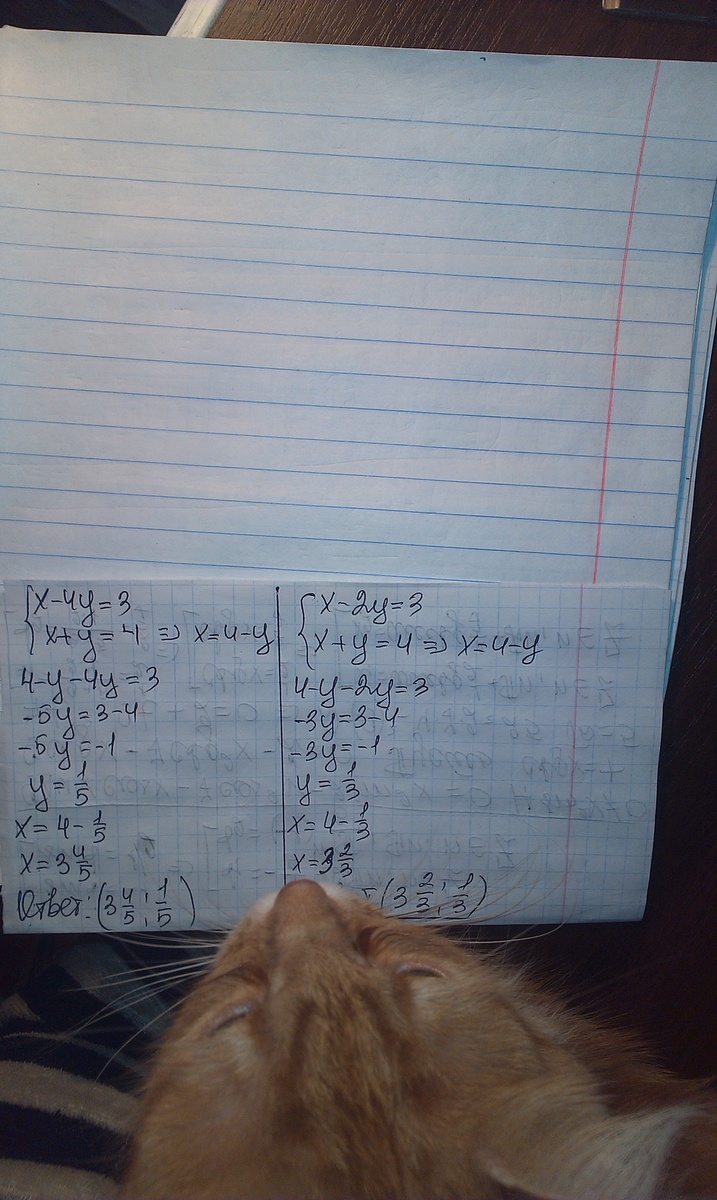 x-4y=3
x+y=4 => x=4-y
4-y-4y=3
-5y=3-4
-5y=-1
y=1/5
x=4-1/5
x=3 4/5
Ответ: (3 4/5; 1/5)
x-2y=3
x+y=4 => x=4-y
4-y-2y=3
-3y=3-4
-3y=-1
y=1/3
x=4-1/3
x=3 2/3
(3 2/3; 1/3)